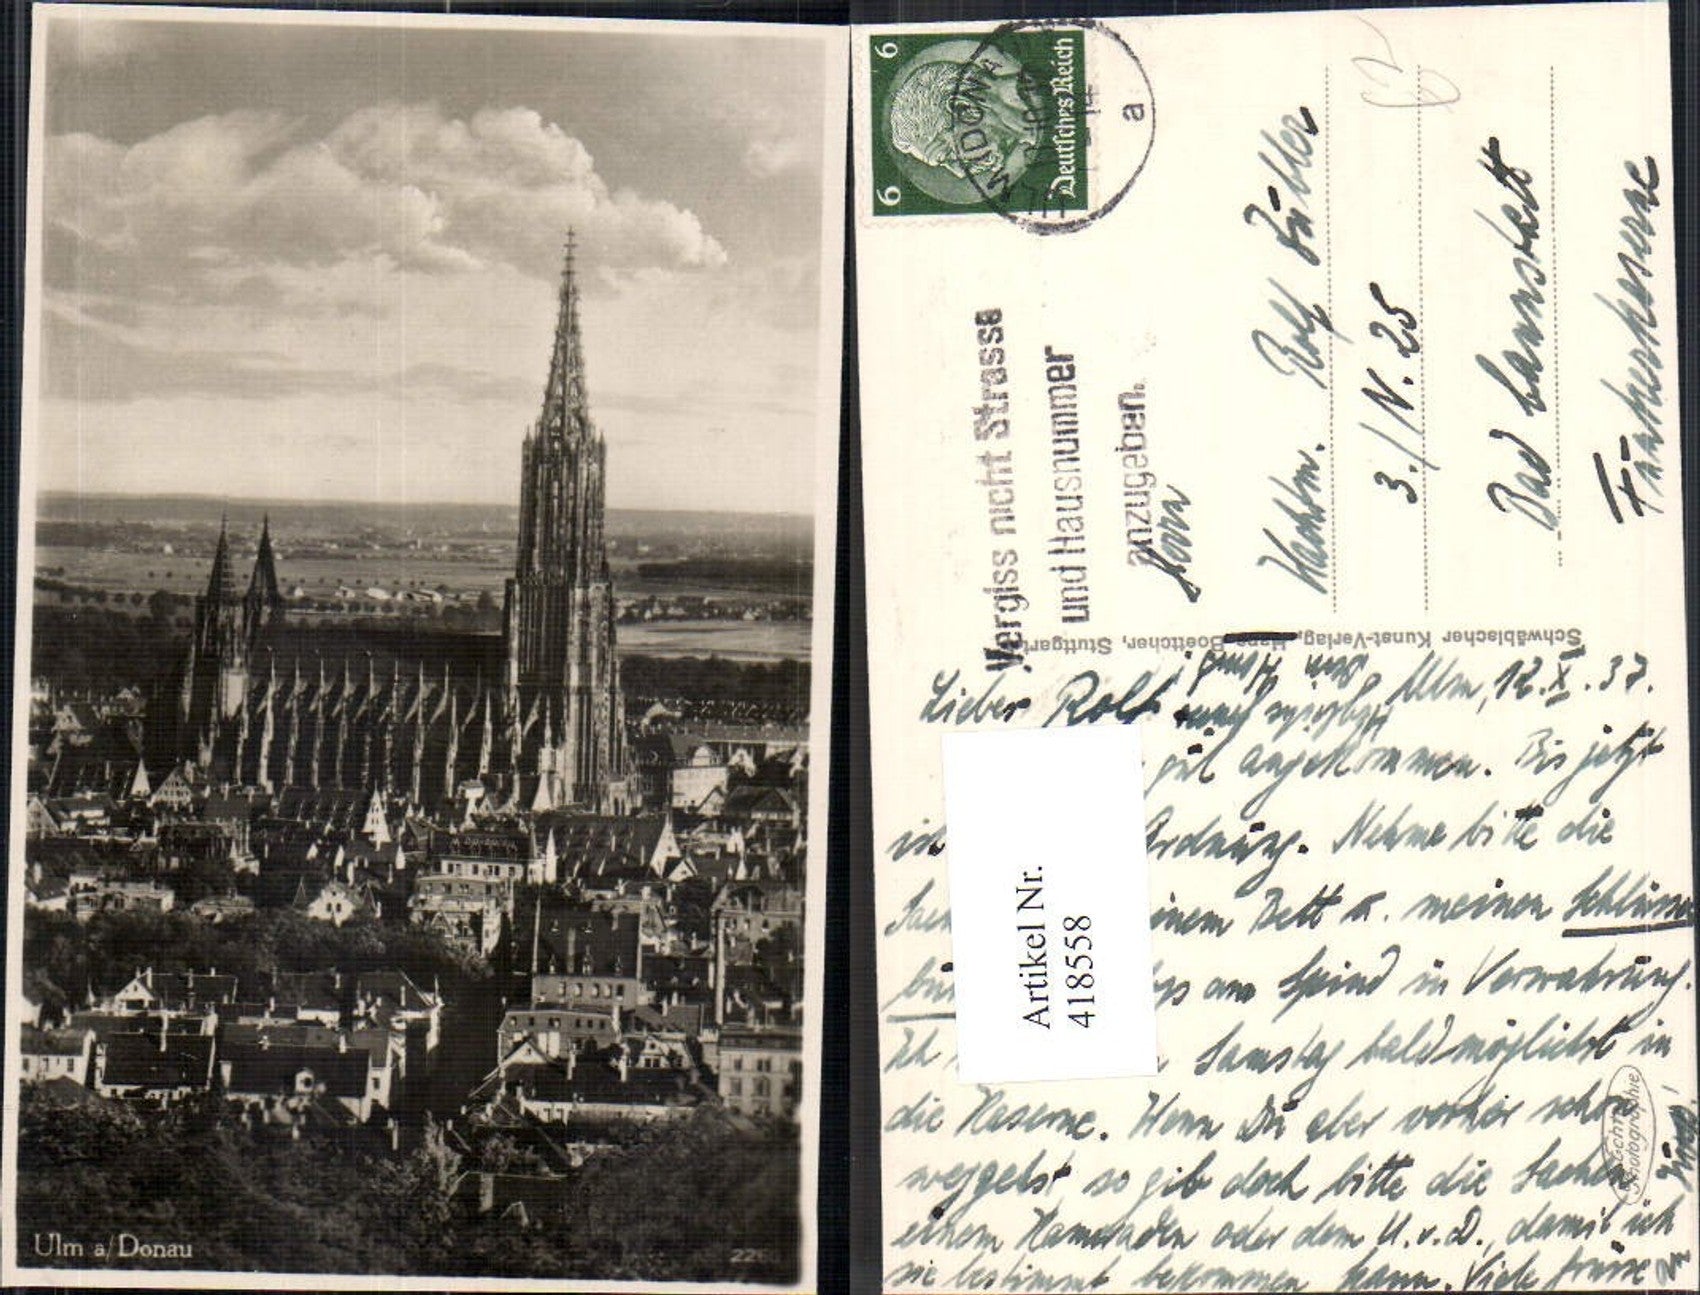 Ulm a/Donau
22
6
6
Deutsches Reich
ULM (DONAU)
a
Vergiss nicht Strasse
und Hausnummer
anzugeben.
Herrn
Rolf
3./N. 25
Bad Cannstatt
Funkerkaserne
Schwäbischer Kunst-Verlag, Hans Boettcher, Stuttgart
Lieber Rolf! Ulm, 12.X.37.
gut angekommen. Bis jetzt
ist Ordnung. Nehme bitte die
einem Bett u. meinen Schlüssel
am Spind in Verwahrung.
Ich Samstag baldmöglichst in
die Kaserne. Wenn Du aber vorher schon
weggehst, so gib doch bitte die Sachen
einem Kameraden oder dem U.v.D., damit ich
sie bestimmt bekommen kann. Viele Grüsse
Artikel Nr.
418558
Echte
Photographie